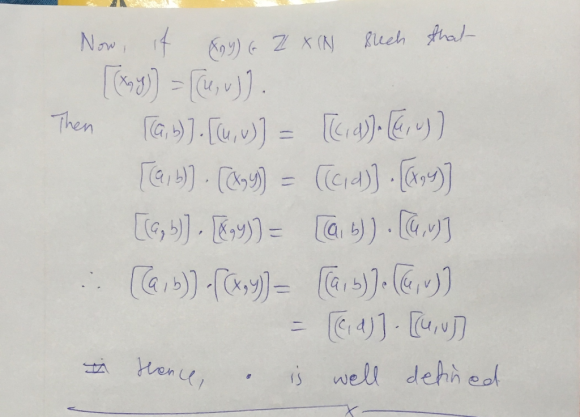 Now, if (x,y) ∈ ℤ × ℕ such that
[(x,y)] = [(u,v)].
Then [(a,b)]·[(u,v)] = [(c,d)]·[(u,v)]
[(a,b)]·[(x,y)] = [(c,d)]·[(x,y)]
[(a,b)]·[(x,y)] = [(a,b)]·[(u,v)]
∴ [(a,b)]·[(x,y)] = [(a,b)]·[(u,v)]
= [(c,d)]·[(u,v)]
Hence, · is well defined
x